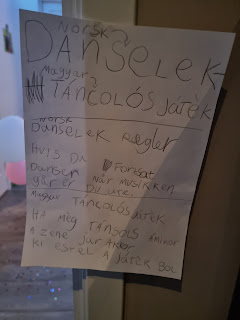 NORSK
DANSELEK
Magyar
TÁNCOLÓS JÁTÉK
NORSK
Danselek Rægler
HVIS DU Fortsat
Danser Når MUSIKKEN
går er DU ute.
Magyar TÁNCOLÓSJÁTÉK
HA MÉG TÁNSOLS AMIKOR
A zene JÁR AKKOR
KI ESTÉL A JÁTÉK BÓL